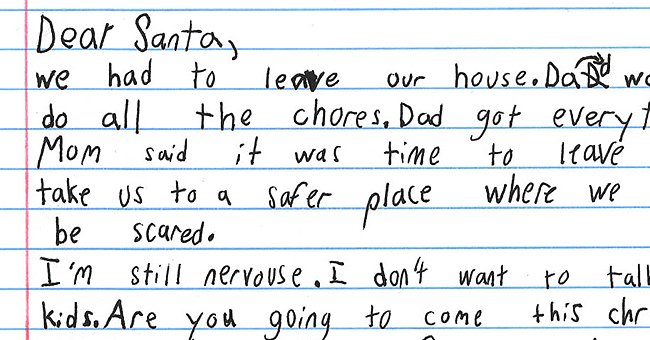 Dear Santa,
we had to leave our house. Dad
do all the chores. Dad got
Mom said it was time to leave
take us to a safer place where we
be scared.
I'm still nervouse. I don't want to
kids. Are you going to come this